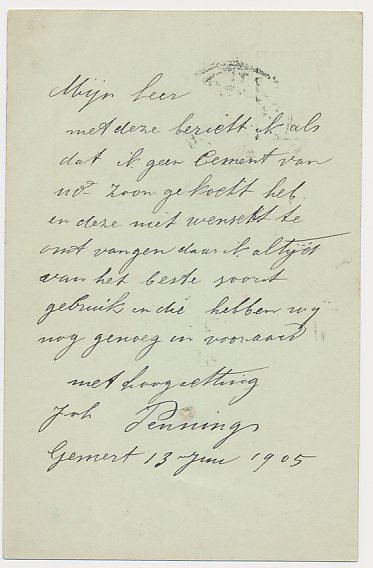 Mijn heer
met deze bericht ik als
dat ik geen Cement van
uw zoon gekocht heb
en deze niet wenscht te
ontvangen daar ik altijdt
van het beste soort
gebruik in die hebben wij
nog genoeg in voorraad
met hoogachting
Joh Pennings
Gemert 13 Juni 1905